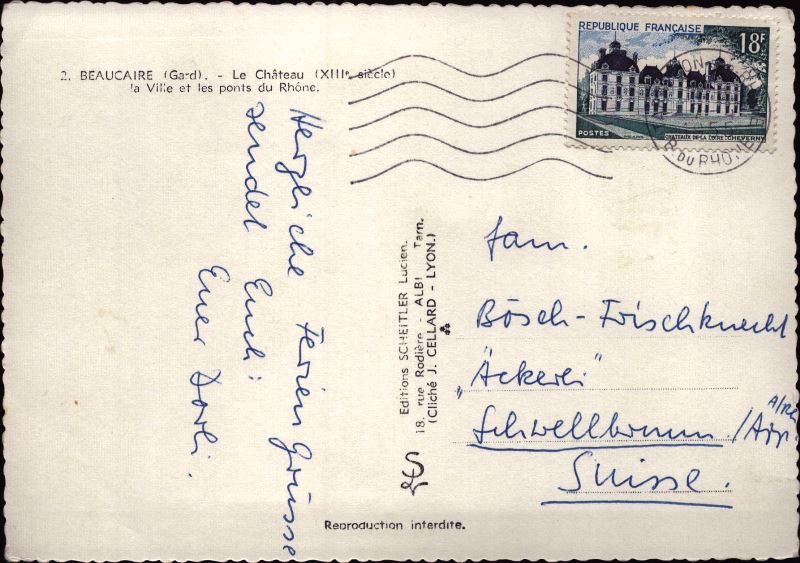 2. BEAUCAIRE (Gard). - Le Château (XIIIe siècle)
la Ville et les ponts du Rhône.
RÉPUBLIQUE FRANÇAISE
18F
POSTES
CHATEAUX DE LA LOIRE: CHEVERNY
B. DU RHONE
Herzliche Feriengrüsse
sendet Euch:
Euer Dorli.
Editions SCHEITLER Lucien.
18, rue Rodière - ALBI - Tarn.
(Cliché J. CELLARD - LYON.)
Fam.
Bösch-Frischknecht
„Äckerli"
Schwellbrunn /App.
Suisse.
Reproduction interdite.